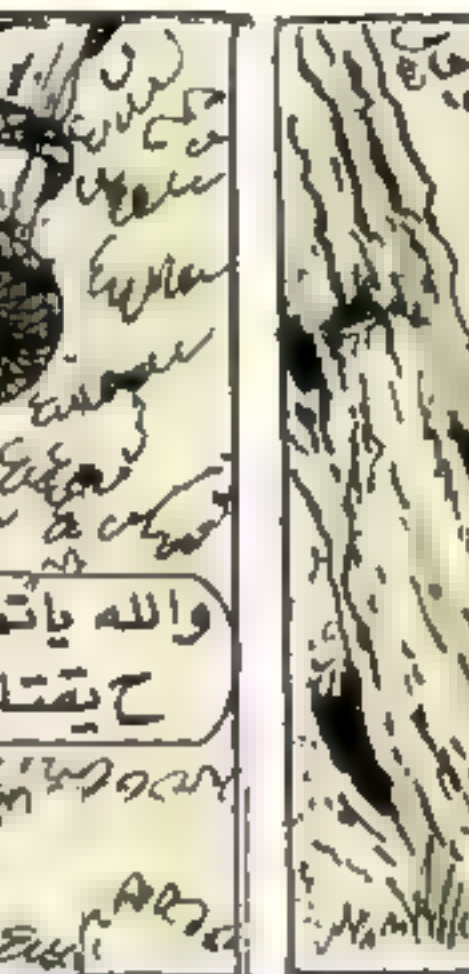 والله ياتـ
ح يقتلـ